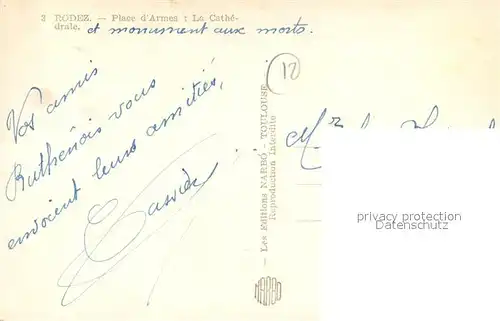 3 RODEZ. — Place d'Armes : La Cathé-
drale. et monument aux morts.
12
Vos amis
Ruthenois vous
envoient leurs amitiés,
— Les Editions NARBO - TOULOUSE —
Reproduction Interdite
NARBO
privacy protection